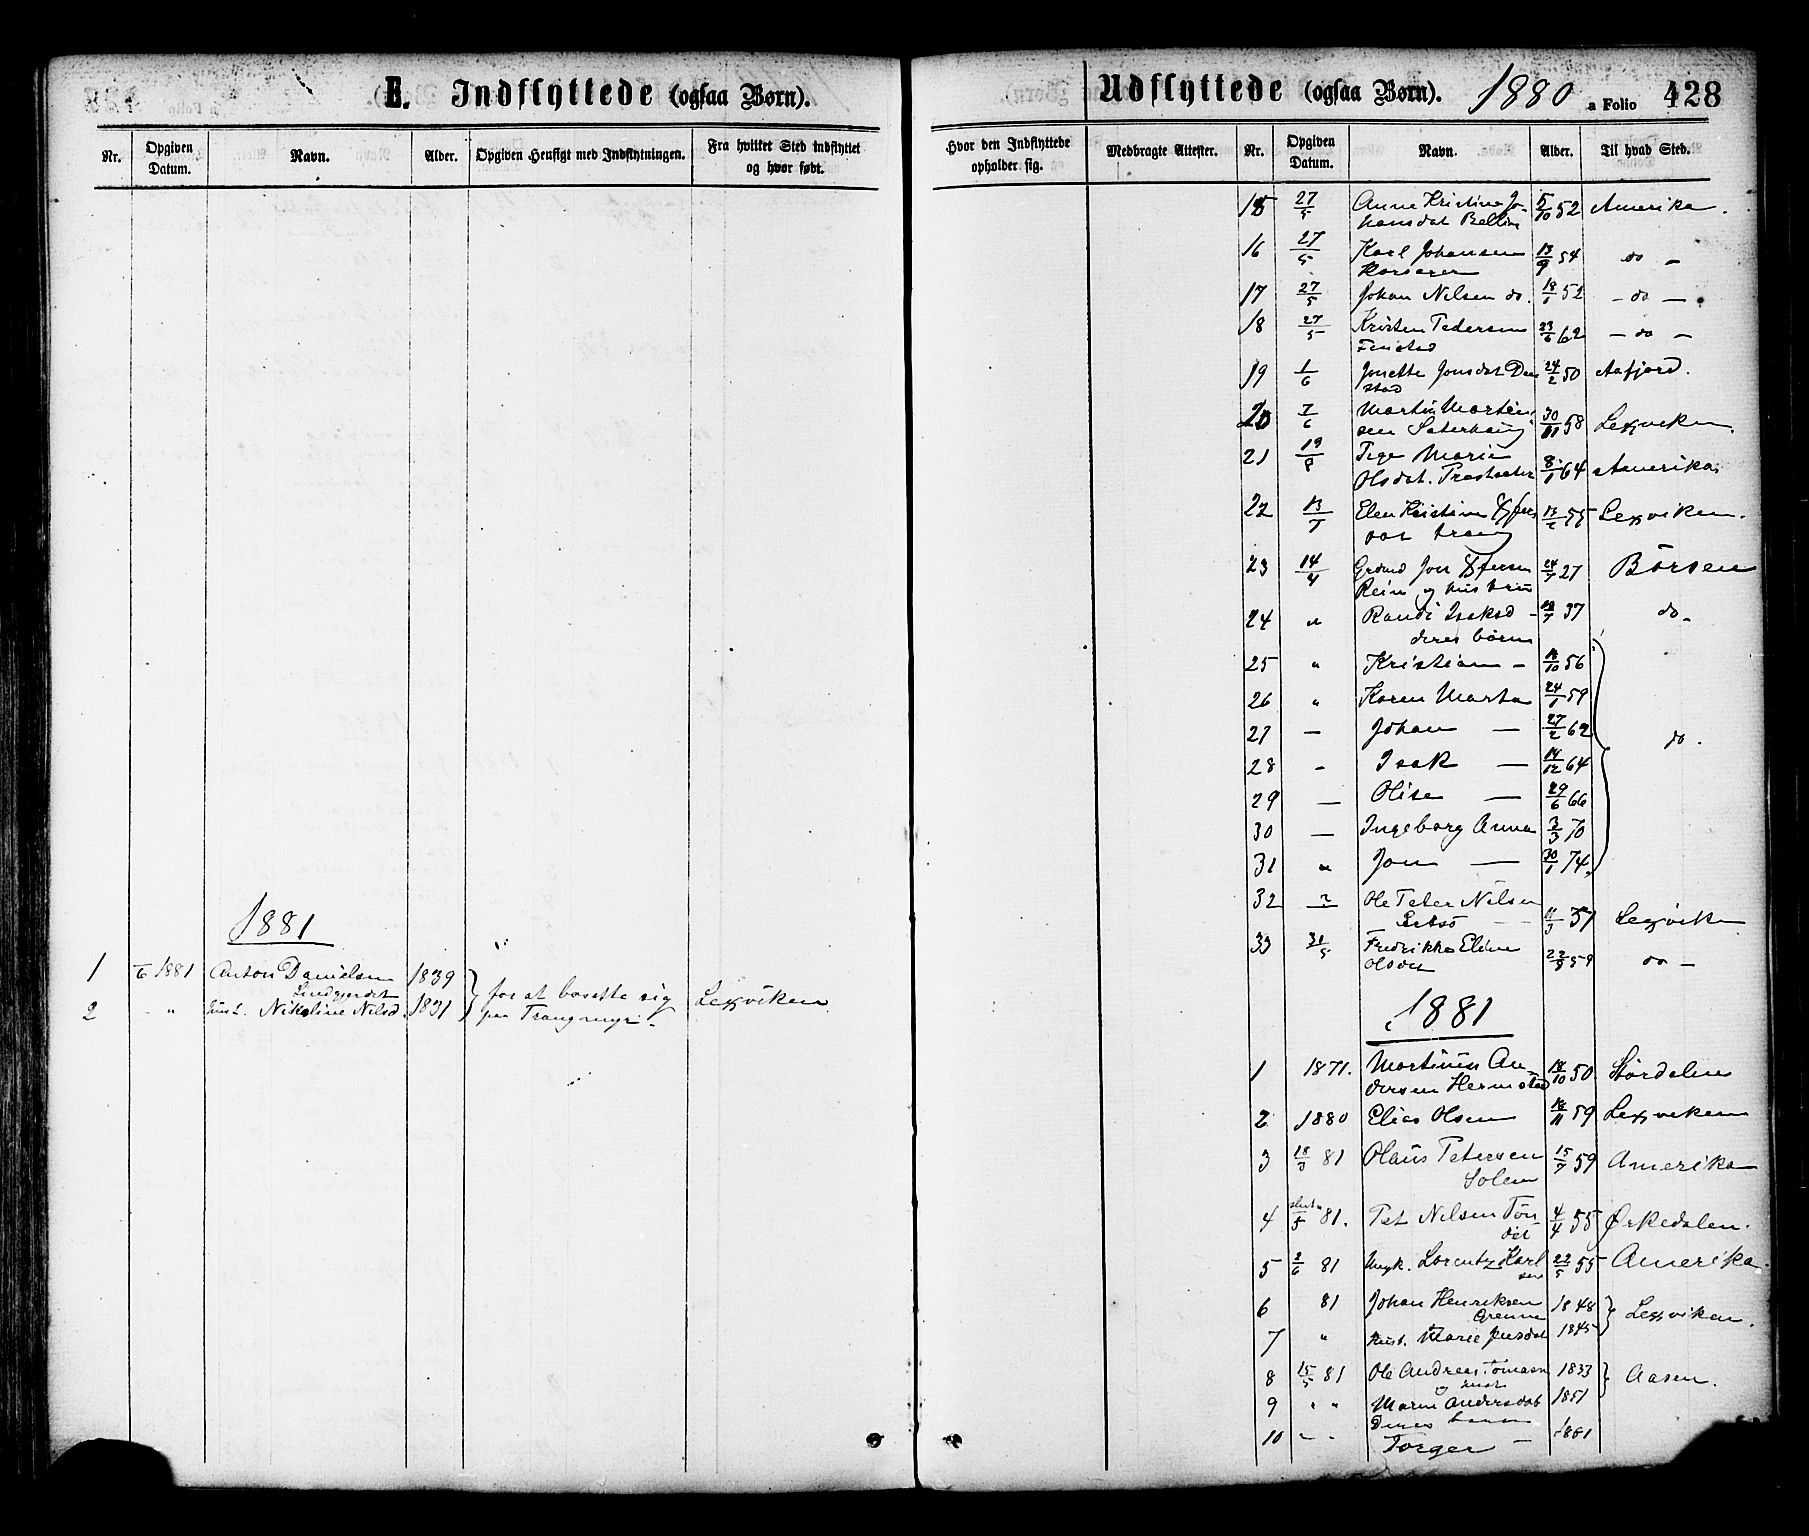 E. Indflyttede (ogsaa Børn).
Nr. Opgiven Datum. Navn. Alder. Opgiven Hensigt med Indflytningen. Fra hvilket Sted indflyttet og hvor født.
1881
1 6 1881 Anton Danielsen 1839 for at bosette sig Lexviken
2 - " Nikoline Nilsd. 1831 paa
Udflyttede (ogsaa Børn). 1880 a Folio 428
Hvor den Indflyttede opholder sig. Medbragte Attester. Nr. Opgiven Datum. Navn. Alder. Til hvad Sted.
15 27/5 Anne Kristine Jo- 5/10 52 Amerika.
hansdat
16 27/5 Karl Johansen 13/9 54 do -
17 27/5 Johan Nilsen do. 52 - do -
18 27/5 Kristen Pedersen 23/6 62 - do -
Fenstad
19 1/6 Jonette Jonsdat 24/2 50 Aafjord.
stad
20 7/6 Martin Morten- 30/11 58 Lexviken.
sen
21 19/8 Marie
Olsdat. 8/1 64 Amerika
22 13/7 Elen Kristine 55 Lexviken.
23 14/4 Jon 27 Børsen
Rein og hustru
24 " Randi Isaksd - 37 do.
deres børn
25 " Kristian - 18/10 56
26 " Karen Marta 24/1 59
27 - Johan - 27/2 62 do.
28 - Isak - 14/12 64
29 - Olise - 29/6 66
30 - Ingeborg Anna 3/3 70
31 " Jon - 30/1 74.
32 Ole Peter Nilsen
11/3 Lexviken
33 31/5 Fredrikke Eline
Olsdat 59 do -
1881
1 1871. Martinus An- 18/10 50 Størdalen
dersen Hermstad
2 1880 Elias Olsen 18/11 59 Lexviken
3 18/3 81 Olaus Petersen 15/7 59 Amerika
Solem
4 81. Pet Nilsen 4/4 55 Ørkedalen.
5 2/6 81 Ungk. Lorentz Karl 22/5 55 Amerika.
sen
6 81 Johan Henriksen 1848 Lexviken.
Grenne
7 " Hust. Marie Jensdat 1845
8 15/5 81 Ole Andreas Tomasen 1833 Aasen.
9 " " Maren Andersdat 1851
Deres barn
10 - - Torger - 1881